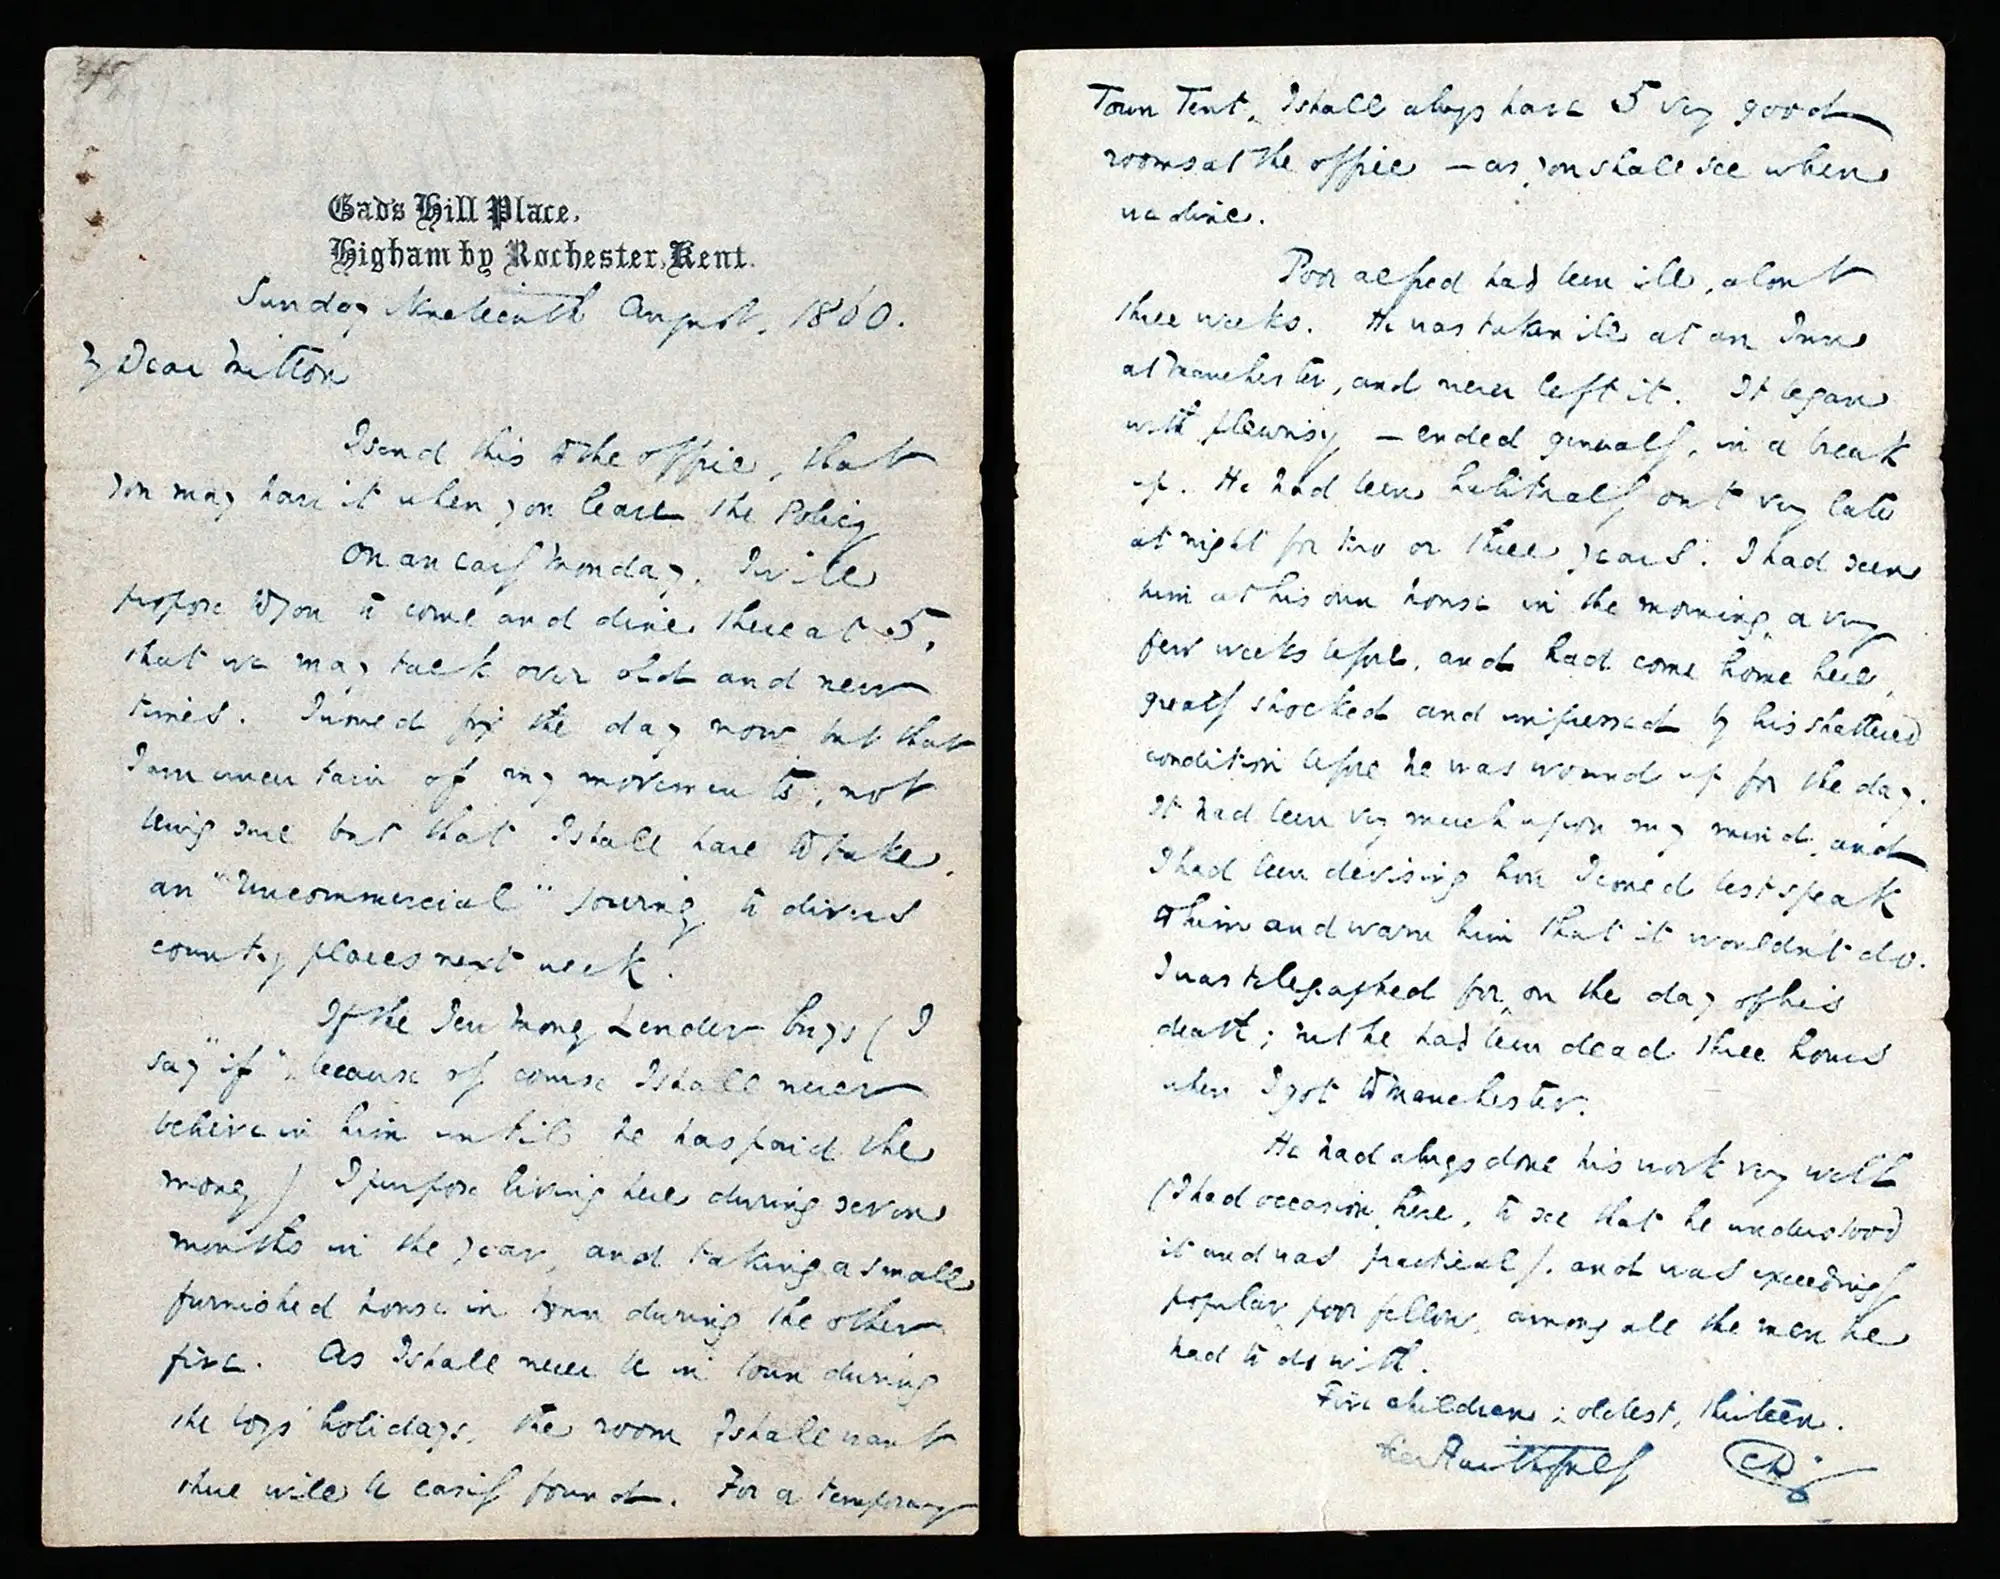 Gad's Hill Place,
Higham by Rochester, Kent.
Sunday Nineteenth August, 1860.
My Dear Mitton
I send this to the office, that
you may have it when you leave the Policy
On an early Monday, I will
propose to you to come and dine there at 5,
that we may talk over old and new
times. I would fix the day now but that
I am uncertain of my movements, not
being sure but that I shall have to take
an "Uncommercial" journey to divers
country places next week.
If the Jew Money Lender buys (I
say "if", because of course I shall never
believe in him until he has paid the
money) I purpose living here during seven
months in the year, and taking a small
furnished house in town during the other
five. As I shall never be in town during
the boys' holidays, the room I shall want
there will be easily found. For a temporary
Town Tent, I shall always have 5 very good
rooms at the office — as you shall see when
we dine.
Poor Alfred had been ill, about
three weeks. He was taken ill at an Inn
at Manchester, and never left it. It began
with pleurisy — ended generally, in a break
up. He had been habitually out very late
at night for two or three years. I had seen
him at his own house in the morning, a very
few weeks before, and had come home here,
greatly shocked and impressed by his shattered
condition before he was wound up for the day.
It had been very much upon my mind, and
I had been devising how I could best speak
to him and warn him that it wouldn't do.
I was telegraphed for, on the day of his
death; but he had been dead three hours
when I got to Manchester.
He had always done his work very well
(I had occasion, here, to see that he understood
it and was practical), and was exceedingly
popular, poor fellow, among all the men he
had to do with.
Five children; oldest, thirteen.
Ever Faithfully CD